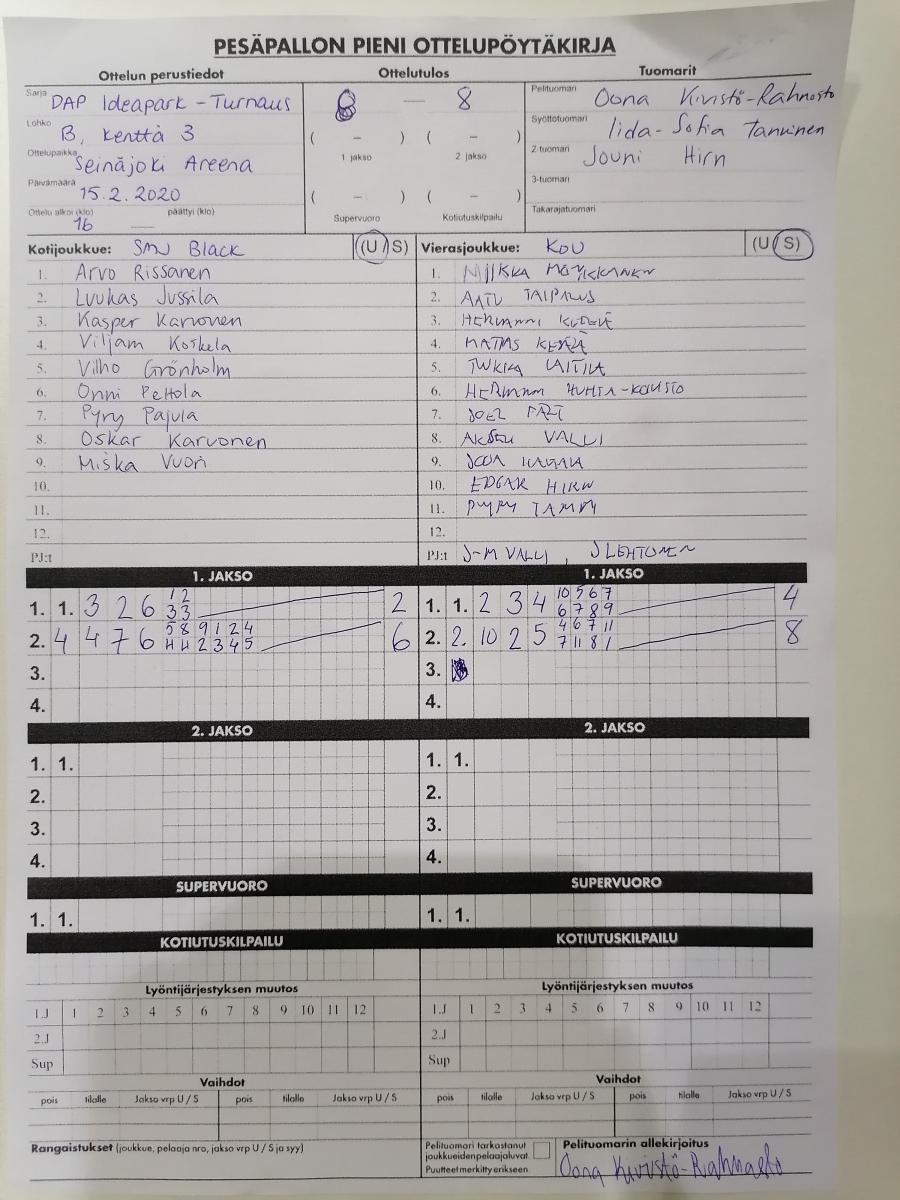 PESÄPALLON PIENI OTTELUPÖYTÄKIRJA
Ottelun perustiedot
Ottelutulos
Tuomarit
Sarja DAP Ideapark - Turnaus
8 — 8
Pelituomari Oona Kivistö-Rahnasto
Lohko B, kenttä 3
( – ) ( – )
1 jakso 2 jakso
Syöttötuomari Iida-Sofia Tanninen
Ottelupaikka Seinäjoki Areena
2-tuomari Jouni Hirn
Päivämäärä 15.2.2020
( – ) ( – )
Supervuoro Kotiutuskilpailu
3-tuomari
Ottelu alkoi (klo) 16 päättyi (klo) —
Takarajatuomari
Kotijoukkue: SMJ Black (U / S)
1. Arvo Rissanen
2. Luukas Jussila
3. Kasper Karvonen
4. Viljam Koskela
5. Vilho Grönholm
6. Onni Peltola
7. Pyry Pajula
8. Oskar Karvonen
9. Miska Vuori
10.
11.
12.
PJ:t
Vierasjoukkue: KoU (U / S)
1. MIIKKA
2. AATU TAIPALUS
3. HERMANNI
4. MATIAS
5. TUKKA LAITILA
6. HERMANNI HUHTA-KOUISTO
7. JOEL
8. AKSELI VALLI
9. JOONA
10. EDGAR HIRN
11. PYRY TAMMI
12.
PJ:t J-M VALLI, J LEHTONEN
1. JAKSO
1. 1. 3 2 6 1 2 2
3 3
2. 4 4 7 6 5 8 9 1 2 4 6
4 4 2 3 4 5
3.
4.
1. JAKSO
1. 1. 2 3 4 10 5 6 7 4
6 7 8 9
2. 2. 10 2 5 4 6 7 11 8
7 11 8 1
3.
4.
2. JAKSO
1. 1.
2.
3.
4.
2. JAKSO
1. 1.
2.
3.
4.
SUPERVUORO
1. 1.
SUPERVUORO
1. 1.
KOTIUTUSKILPAILU
KOTIUTUSKILPAILU
Lyöntijärjestyksen muutos
1.J 1 2 3 4 5 6 7 8 9 10 11 12
2.J
Sup
Lyöntijärjestyksen muutos
1.J 1 2 3 4 5 6 7 8 9 10 11 12
2.J
Sup
Vaihdot
pois tilalle Jakso vrp U / S pois tilalle Jakso vrp U / S
Vaihdot
pois tilalle Jakso vrp U / S pois tilalle Jakso vrp U / S
Rangaistukset (joukkue, pelaaja nro, jakso vrp U / S ja syy)
Pelituomari tarkastanut
joukkueidenpelaajaluvat.
Puutteet merkitty erikseen.
Pelituomarin allekirjoitus
Oona Kivistö-Rahnasto